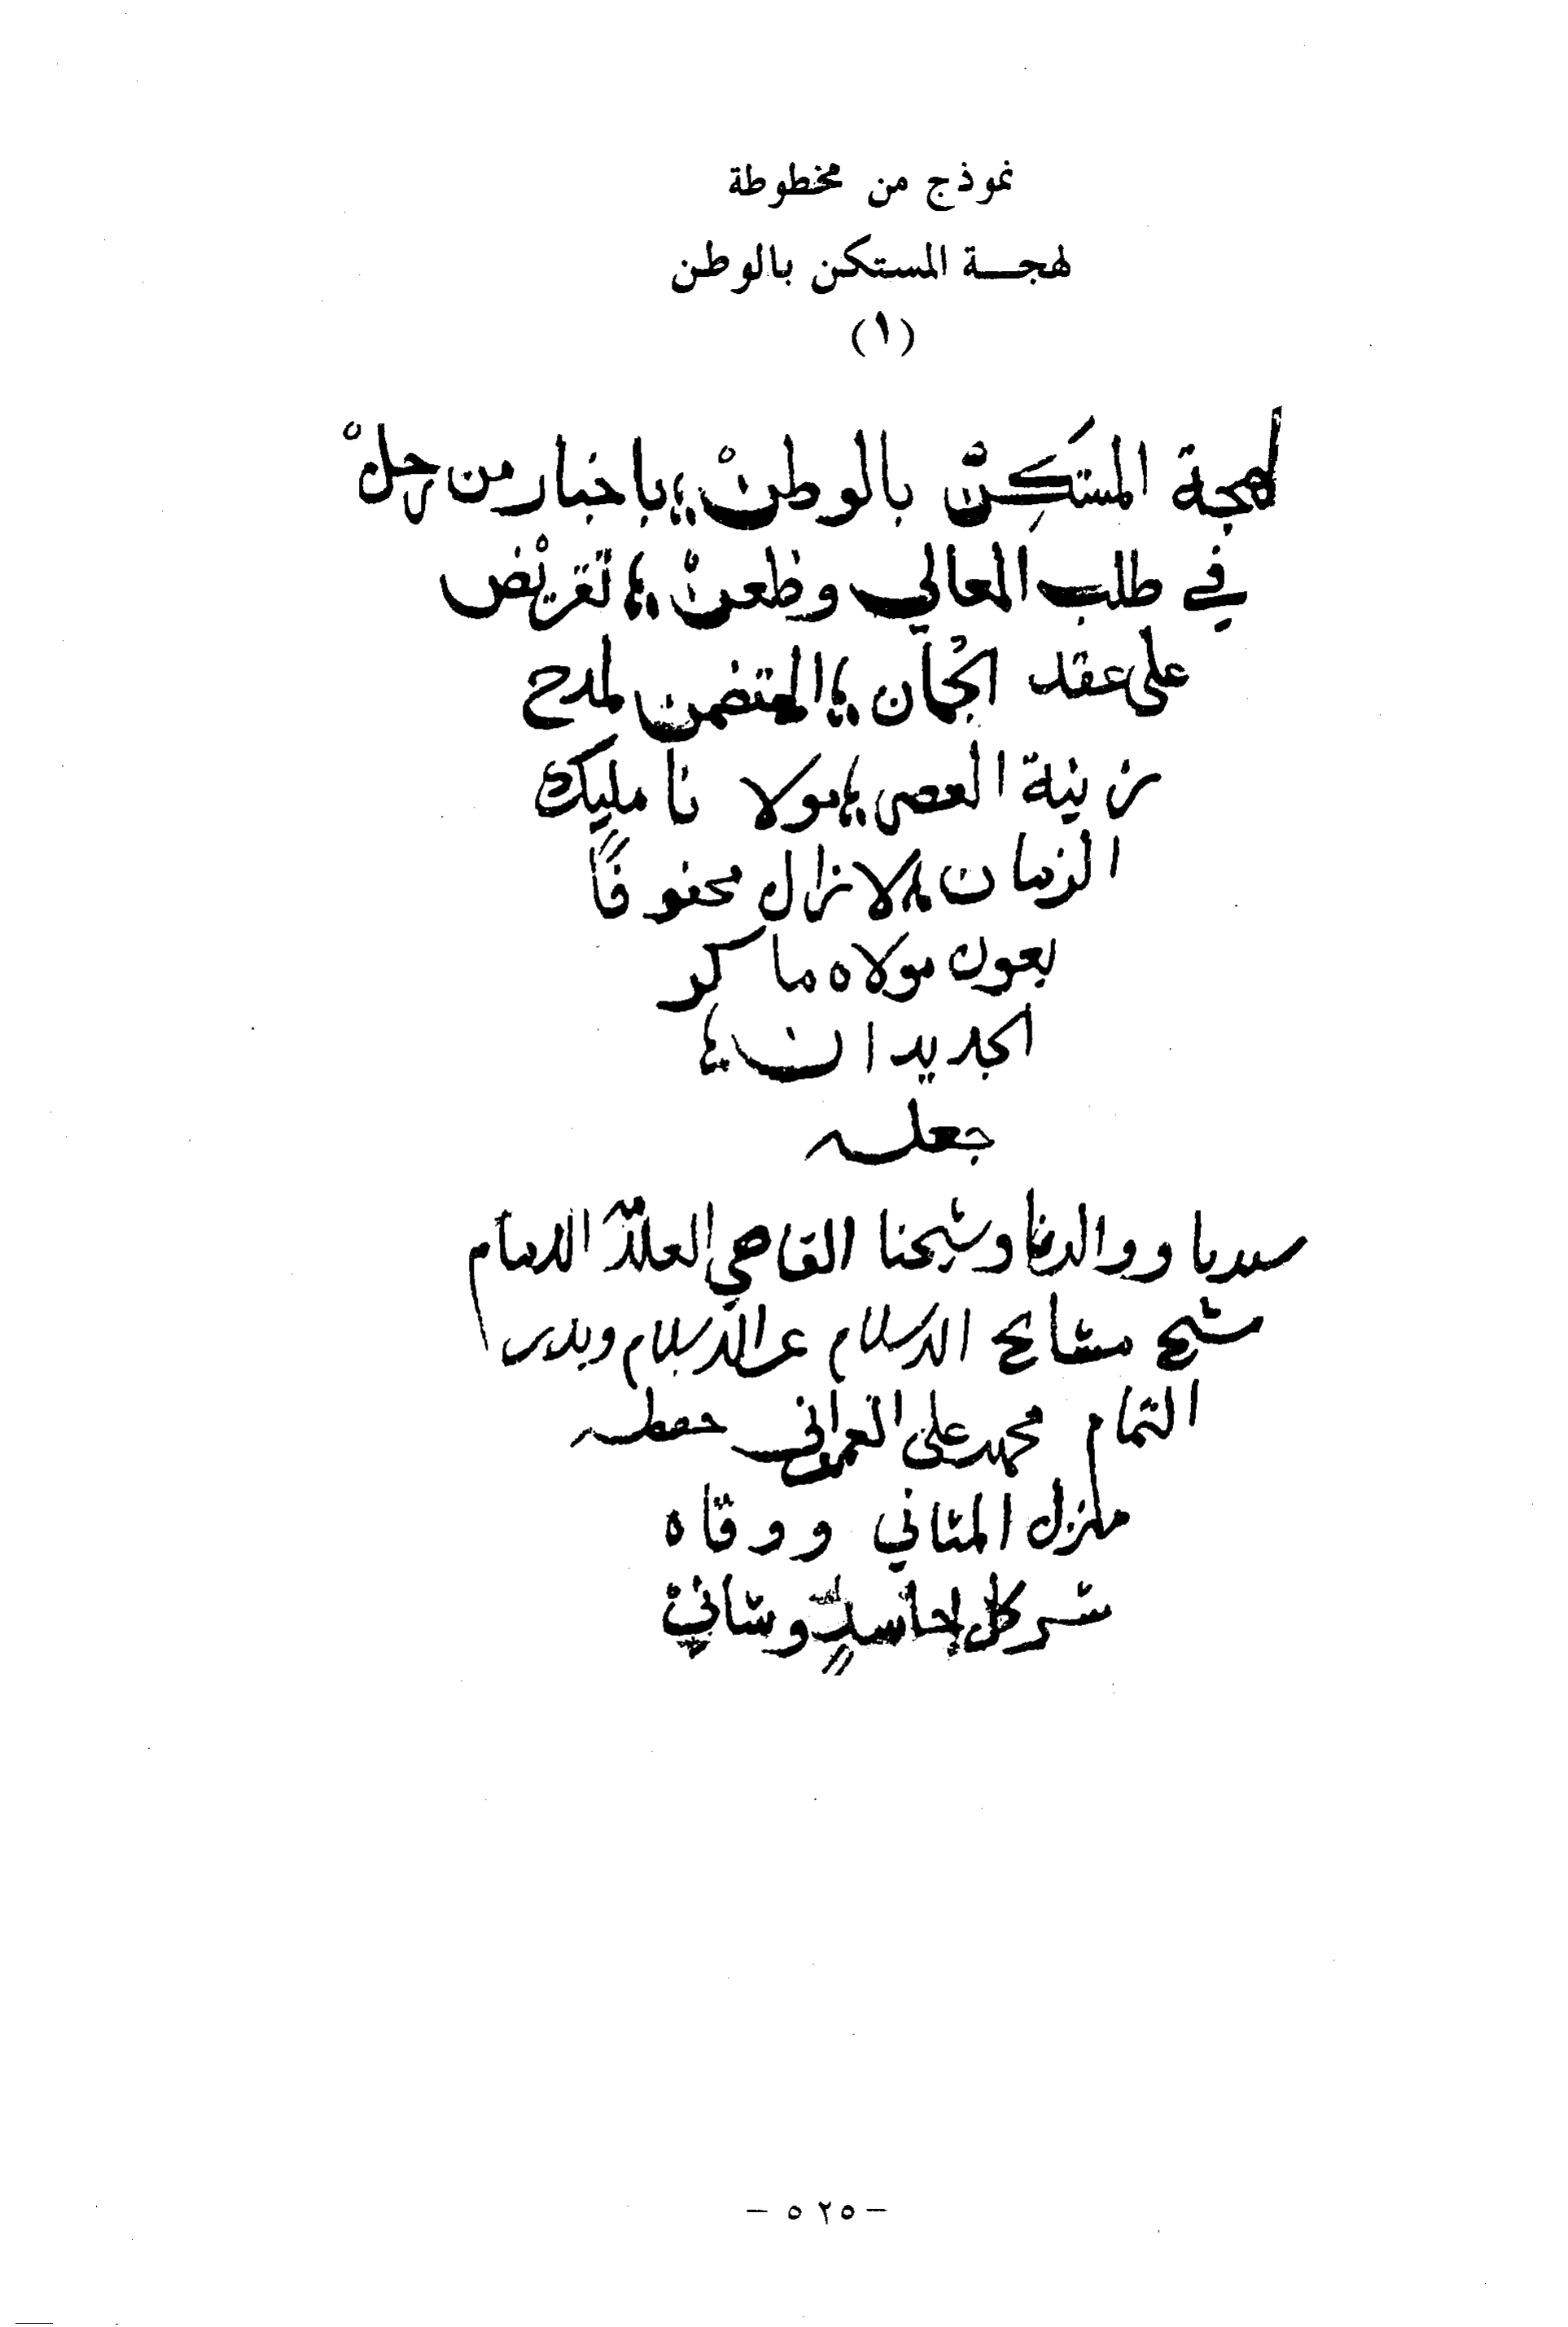 نموذج من مخطوطة
لهجة المستكن بالوطن
(١)
لهجة المستَكِنّ بالوطنْ ؛ باخبار من رحلْ
في طلب المعالي وظعنْ ؛ تقريْض
على عقد الجُمان ؛ المتضمن لمدح
زينة العصر ؛ مولانا مليك
الزمان ؛ لازال محفوفًا
بعون مولاه ما كر
الجديدان ؛
جعله
سيدنا ووالدنا وشيخنا القاضي العلامة الامام
شيخ مشايخ الاسلام عز الاسلام وبدر
التمام محمد علي العمراني حفظه
منزل المثاني ووقاه
شر كل حاسدٍ وشاني
- ٥٢٥ -